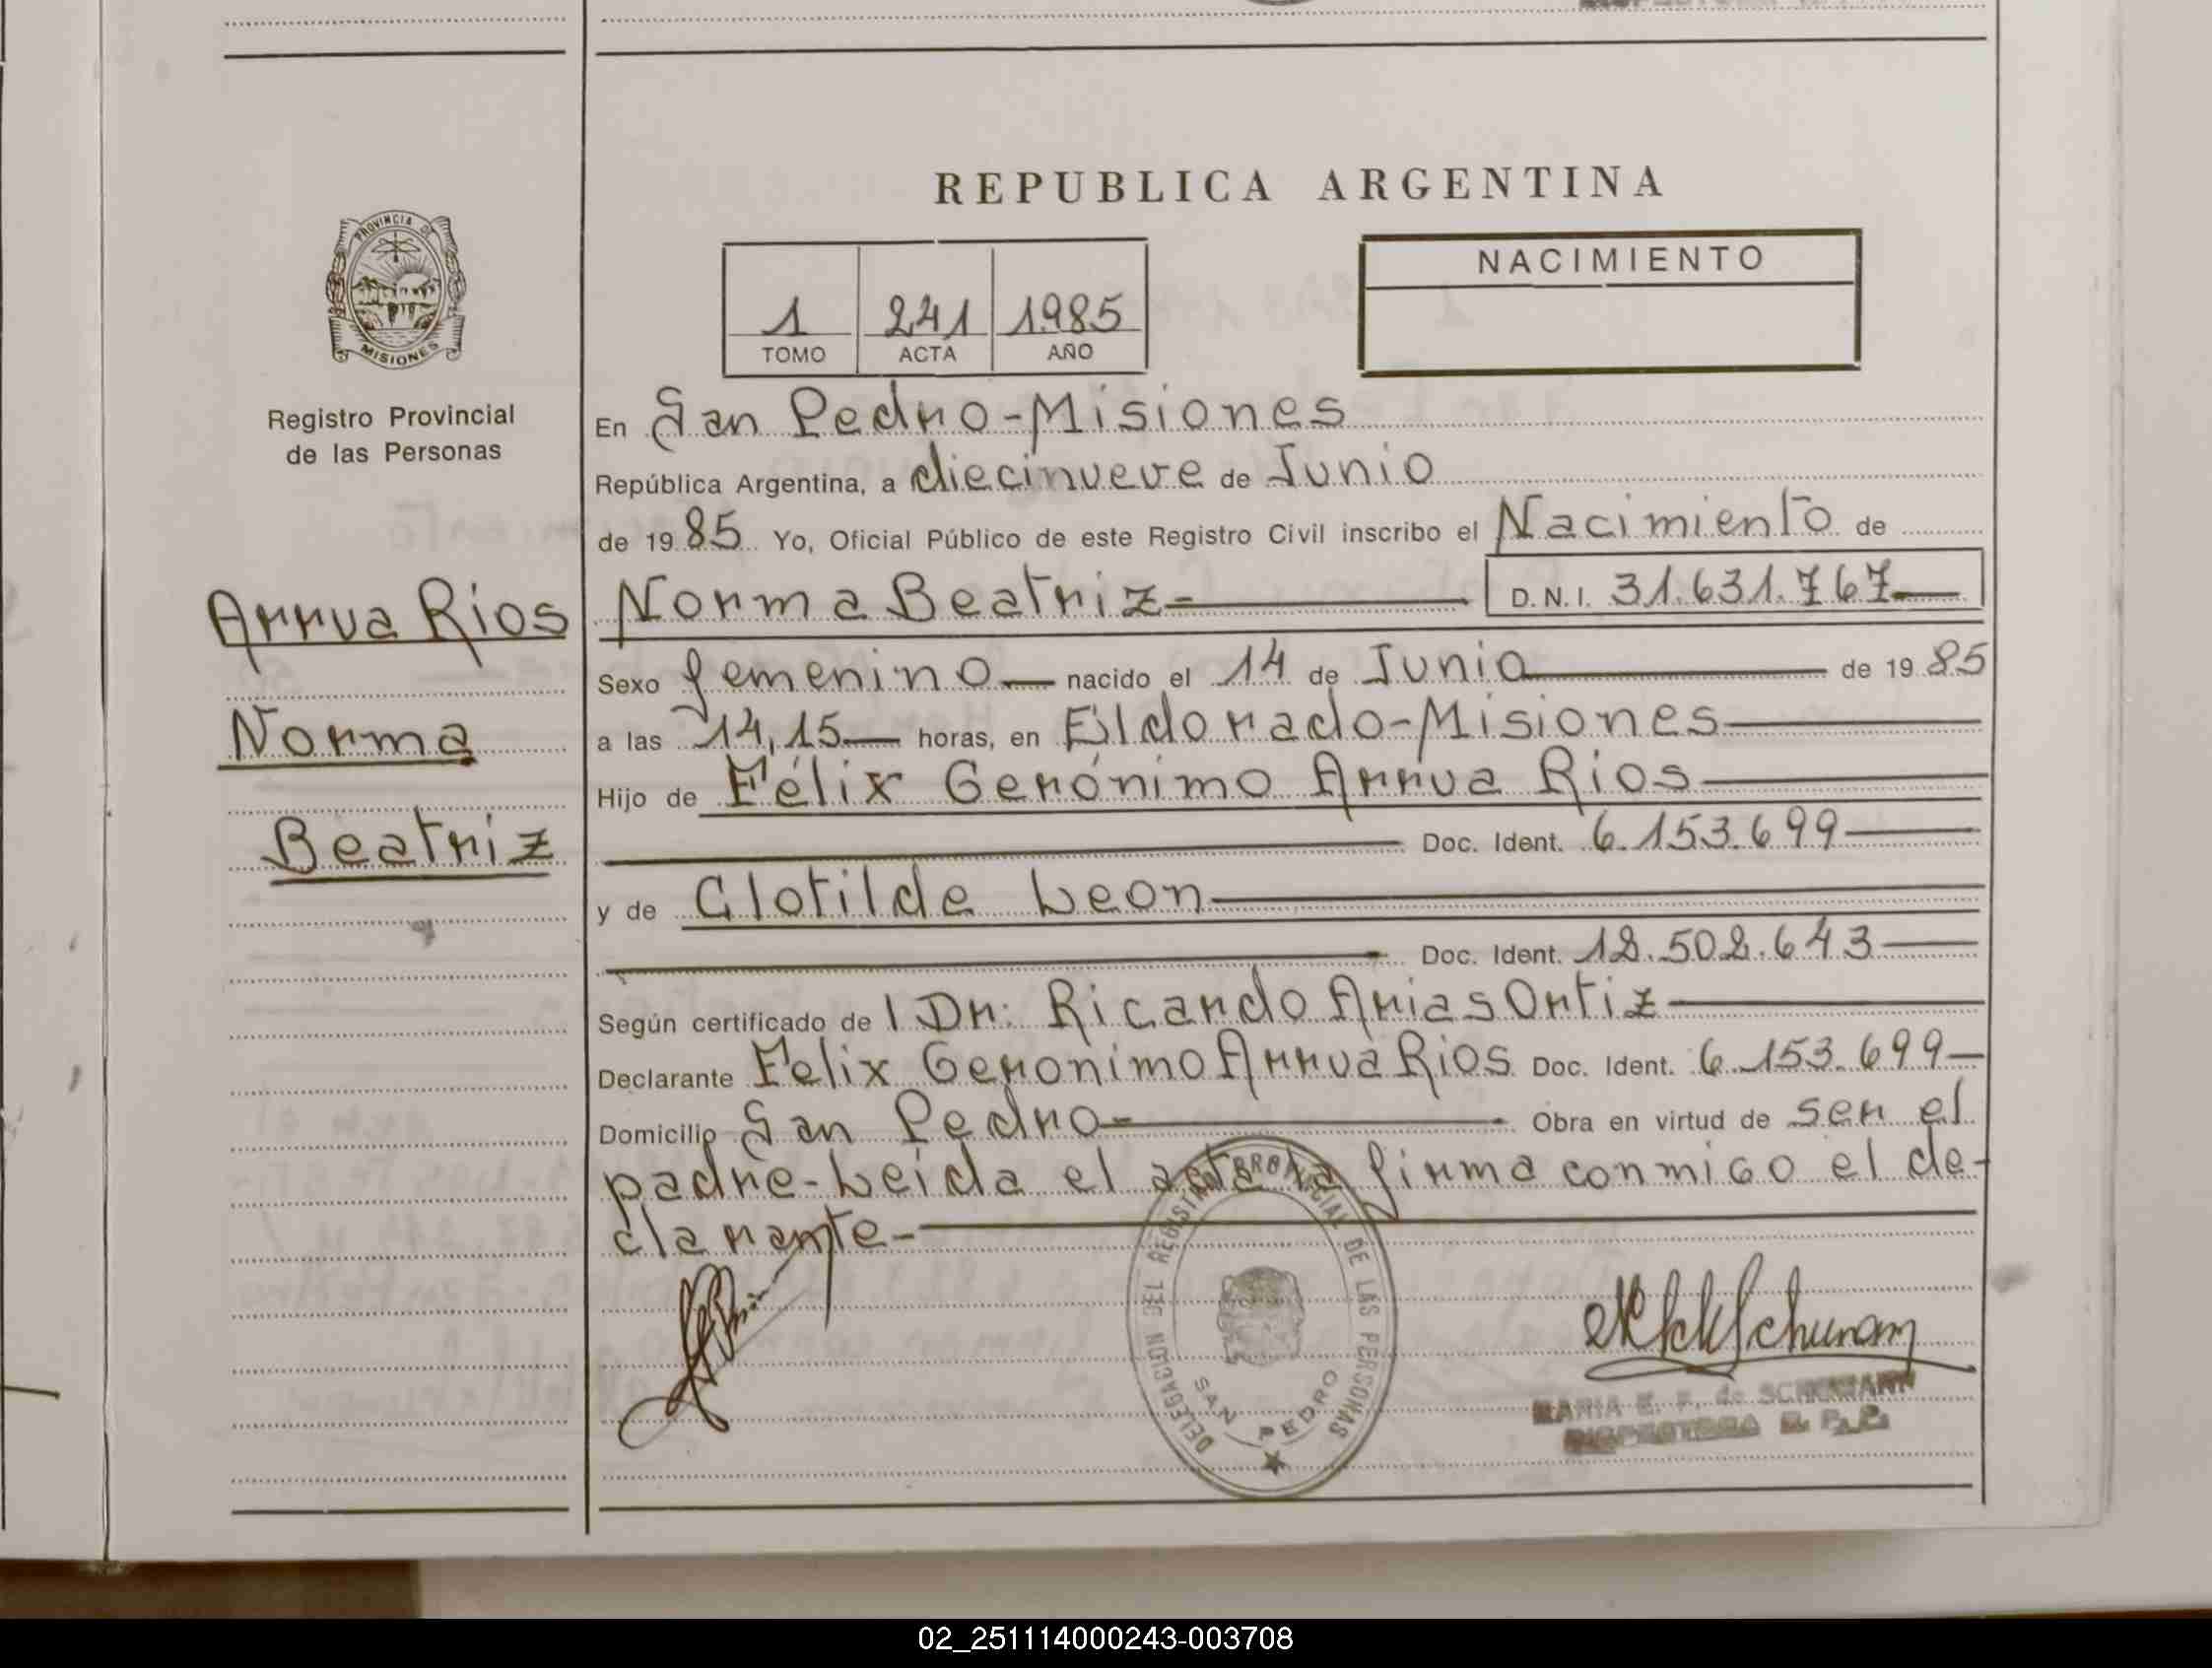 REPUBLICA ARGENTINA
PROVINCIA DE
MISIONES
Registro Provincial
de las Personas
Arrua Rios
Norma
Beatriz
1 241 1985
TOMO ACTA AÑO
NACIMIENTO
En San Pedro-Misiones
República Argentina, a diecinueve de Junio
de 1985 Yo, Oficial Público de este Registro Civil inscribo el Nacimiento de
Norma Beatriz- D.N.I. 31.631.767
Sexo femenino nacido el 14 de Junio de 1985
a las 14,15 horas, en Eldorado-Misiones
Hijo de Félix Gerónimo Arrua Rios
Doc. Ident. 6.153.699
y de Clotilde Leon
Doc. Ident. 12.502.643
Según certificado de l Dr: Ricardo Arias Ortiz
Declarante Felix Geronimo Arrua Rios Doc. Ident. 6.153.699
Domicilio San Pedro- Obra en virtud de ser el
padre-Leida el acta la firma conmigo el de-
clarante-
DELEGACION DEL REGISTRO PROVINCIAL DE LAS PERSONAS
SAN PEDRO
MARIA E. F. de SCHUMANN
INSPECTORA R. P. P.
02_251114000243-003708